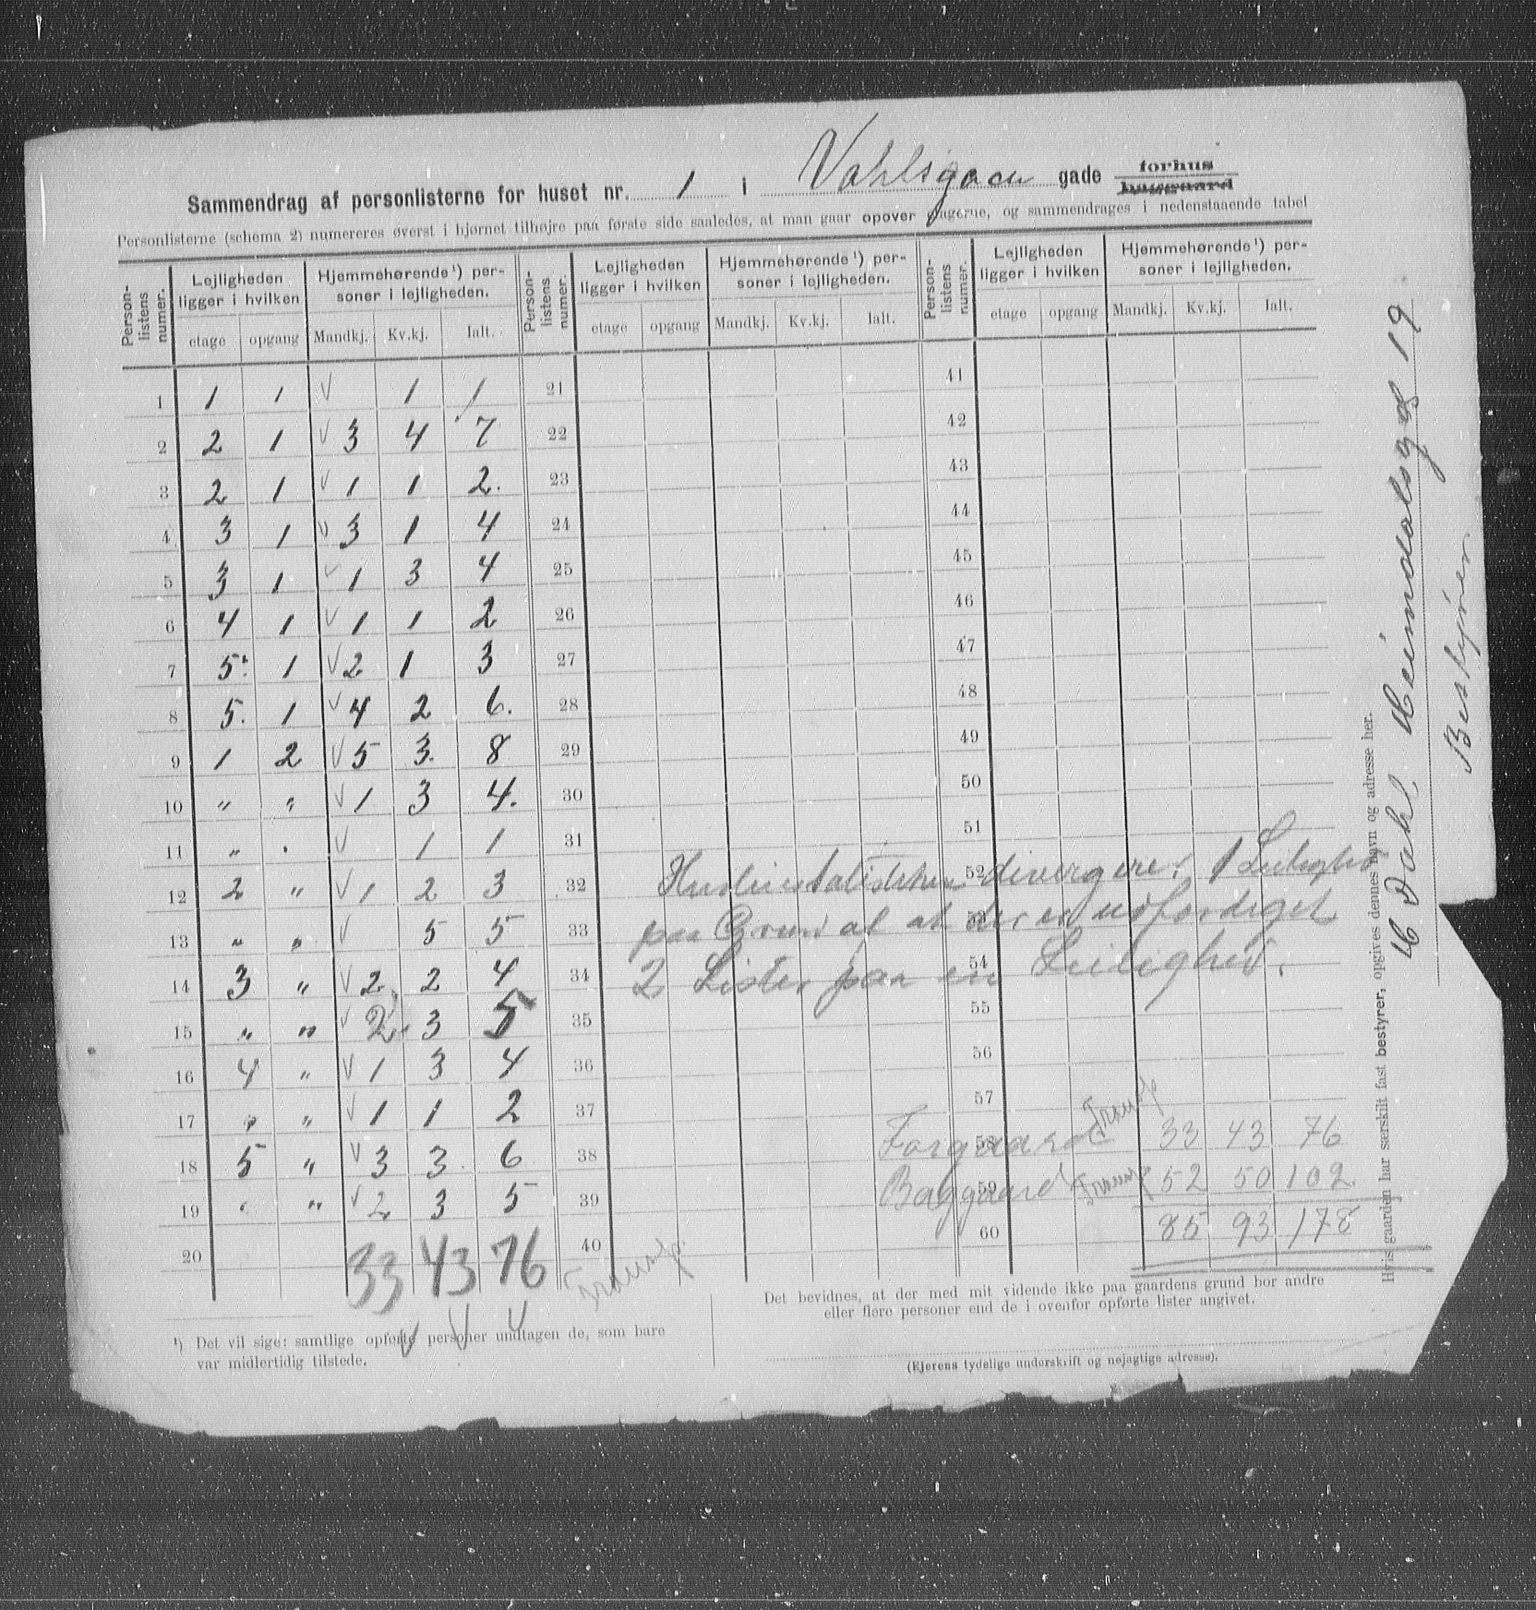 Sammendrag af personlisterne for huset nr. 1 i Vahlsgaden gade forhus baggaard
Personlisterne (schema 2) numereres øverst i hjørnet tilhøjre paa første side saaledes, at man gaar opover etagerne, og sammendrages i nedenstaaende tabel
Personlistens numer. | Lejligheden ligger i hvilken | Hjemmehørende ¹) personer i lejligheden.
etage | opgang | Mandkj. | Kv.kj. | Ialt.
Personlistens numer. | Lejligheden ligger i hvilken | Hjemmehørende ¹) personer i lejligheden.
etage | opgang | Mandkj. | Kv.kj. | Ialt.
Personlistens numer. | Lejligheden ligger i hvilken | Hjemmehørende ¹) personer i lejligheden.
etage | opgang | Mandkj. | Kv.kj. | Ialt.
1 | 1 | 1 | √ | 1 | 1 | 21 | 41
2 | 2 | 1 | √ 3 | 4 | 7 | 22 | 42
3 | 2 | 1 | √ 1 | 1 | 2. | 23 | 43
4 | 3 | 1 | √ 3 | 1 | 4 | 24 | 44
5 | 3 | 1 | √ 1 | 3 | 4 | 25 | 45
6 | 4 | 1 | √ 1 | 1 | 2 | 26 | 46
7 | 5. | 1 | √ 2 | 1 | 3 | 27 | 47
8 | 5. | 1 | √ 4 | 2 | 6. | 28 | 48
9 | 1 | 2 | √ 5 | 3. | 8 | 29 | 49
10 | " | " | √ 1 | 3 | 4. | 30 | 50
11 | " | " | √ | 1 | 1 | 31 | 51
12 | 2 | " | √ 1 | 2 | 3 | 32 | 52
13 | " | " | √ | 5 | 5 | 33 | 53
14 | 3 | " | √ 2 | 2 | 4 | 34 | 54
15 | " | " | √ 2 | 3 | 5 | 35 | 55
16 | 4 | " | √ 1 | 3 | 4 | 36 | 56
17 | " | " | √ 1 | 1 | 2 | 37 | 57
18 | 5 | " | √ 3 | 3 | 6 | 38 | 58
19 | " | " | √ 2 | 3 | 5 | 39 | 59
20 | 33 | 43 | 76 | 40 | 60
Transp.
√ √ √
divergerer 1 Leilighed
paa Grund af at der er udfærdiget
2 Lister paa en Leilighed.
Forgaard Transp 33 43 76
Baggaard Transp 52 50 102
85 93 178
¹) Det vil sige: samtlige opførte personer undtagen de, som bare
var midlertidig tilstede.
Det bevidnes, at der med mit vidende ikke paa gaardens grund bor andre
eller flere personer end de i ovenfor opførte lister angivet.
(Ejerens tydelige underskrift og nøjagtige adresse).
Hvis gaarden har særskilt fast bestyrer, opgives dennes navn og adresse her.
H Dahl Heimdalsgd 19
Bestyrer